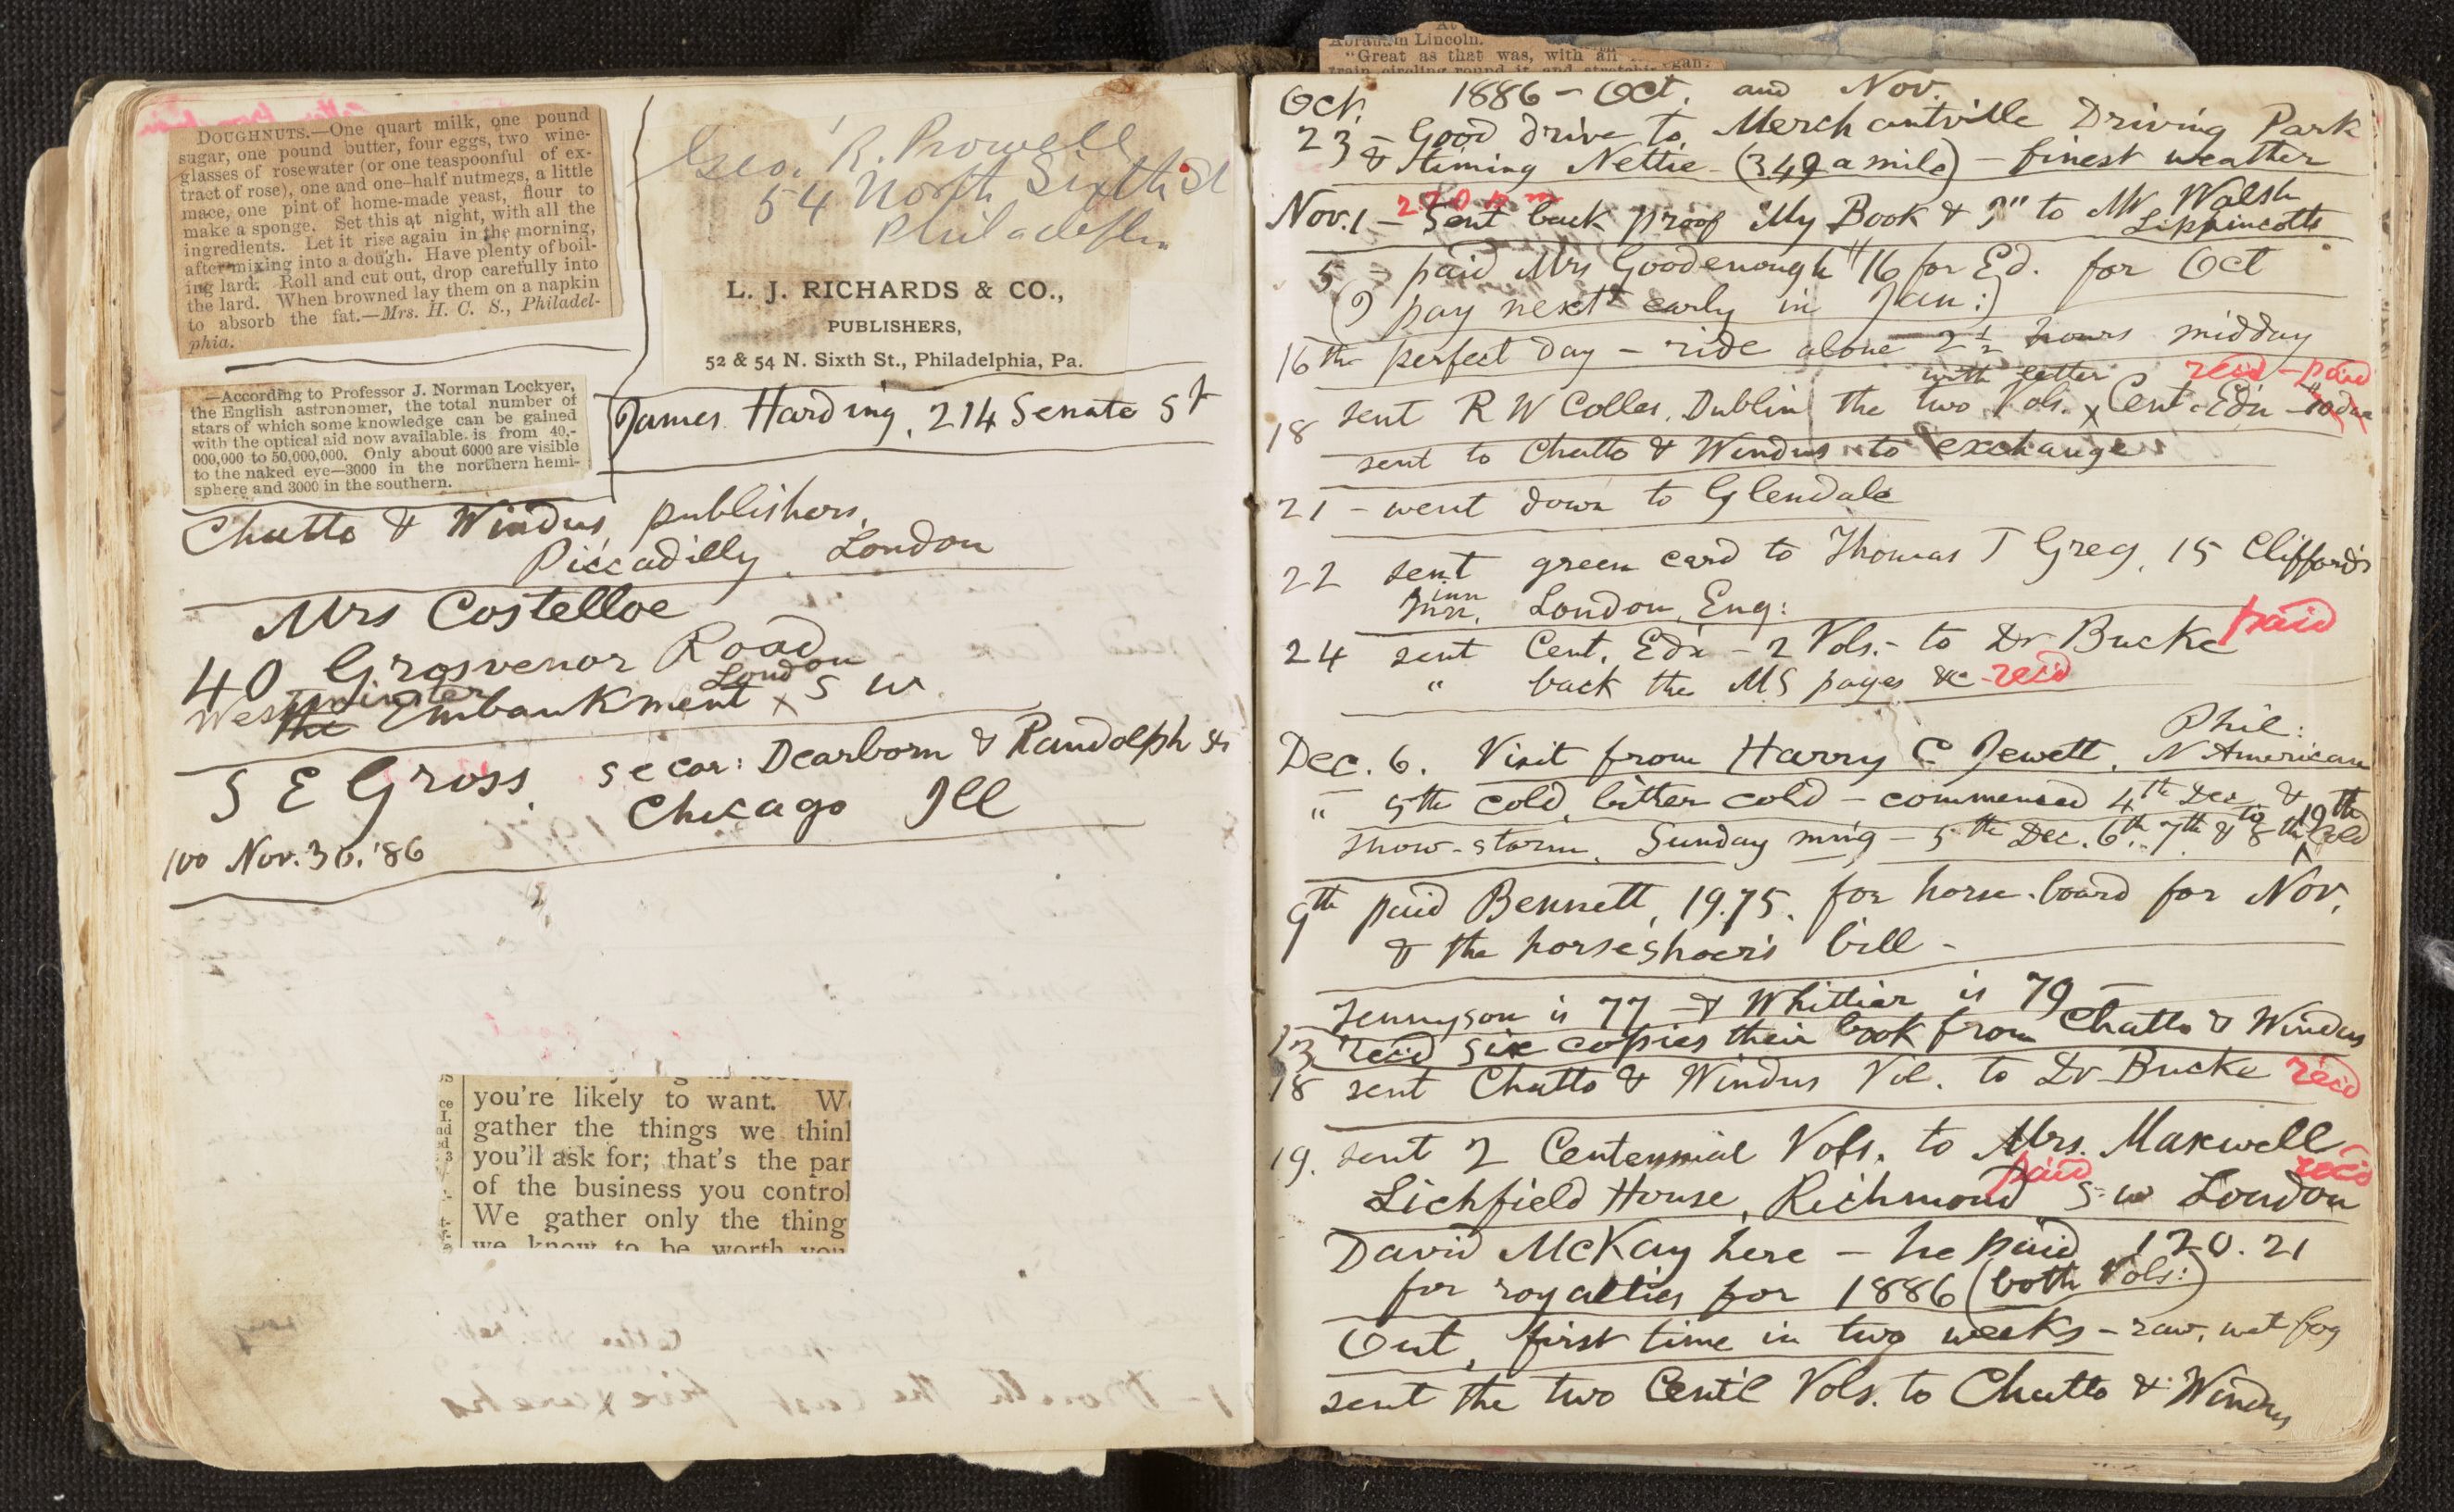 DOUGHNUTS.—One quart milk, one pound
sugar, one pound butter, four eggs, two wine-
glasses of rosewater (or one teaspoonful of ex-
tract of rose), one and one-half nutmegs, a little
mace, one pint of home-made yeast, flour to
make a sponge. Set this at night, with all the
ingredients. Let it rise again in the morning,
after mixing into a dough. Have plenty of boil-
ing lard. Roll and cut out, drop carefully into
the lard. When browned lay them on a napkin
to absorb the fat.—Mrs. H. C. S., Philadel-
phia.
Geo. R. Prowell
54 North Sixth St
Philadelphia
L. J. RICHARDS & CO.,
PUBLISHERS,
52 & 54 N. Sixth St., Philadelphia, Pa.
—According to Professor J. Norman Lockyer,
the English astronomer, the total number of
stars of which some knowledge can be gained
with the optical aid now available is from 40,-
000,000 to 50,000,000. Only about 6000 are visible
to the naked eye—3000 in the northern hemi-
sphere and 3000 in the southern.
James Harding, 214 Senate St
Chatto & Windus publishers,
Piccadilly, London
Mrs Costelloe
40 Grosvenor Road
Westminster London
the Embankment x S W
S E Gross, s e cor: Dearborn & Randolph sts
Chicago Ill
100 Nov. 30, '86
you're likely to want. W
gather the things we thin
you'll ask for; that's the par
of the business you control
We gather only the thing
we know to be worth you
Abraham Lincoln.
"Great as that was, with all
1886 – Oct. and Nov.
Oct.
23 – Good drive to Merchantville Driving Park
& timing Nettie – (3.49 a mile) – finest weather
Nov. 1 – Sent back proof "My Book & I" to Mr Walsh
Lippincotts
5 – paid Mrs Goodenough $16 for Ed. for Oct
(I pay next early in Jan:)
16th perfect day – ride alone 2½ hours midday
with letter rec'd – paid
18 sent R W Colles, Dublin the two Vols. x Cent. Ed'n
sent to Chatto & Windus to exchange
21 – went down to Glendale
22 sent green card to Thomas T Greg, 15 Clifford's
inn
Inn, London, Eng:
24 sent Cent. Ed'n – 2 Vols. – to Dr Bucke paid
" back the MS pages &c rec'd
Phil:
Dec. 6. Visit from Harry C Jewett, N American
" 5th cold, bitter cold – commenced 4th Dec & to 19th
snow-storm, Sunday mn'g – 5th Dec. 6th, 7th & 8th Cold
9th paid Bennett, 19.75, for horse-board for Nov,
& the horseshoer's bill –
Tennyson is 77 – & Whittier is 79 –
13 rec'd six copies their book from Chatto & Windus
18 sent Chatto & Windus Vol. to Dr Bucke rec'd
19. sent 2 Centennial Vols. to Mrs. Maxwell
paid rec'd
Lichfield House, Richmond, S. W London
David McKay here – he paid 120.21
for royalties for 1886 (both Vols:)
Out, first time in two weeks – raw, wet fog
sent the two Cent'l Vols. to Chatto & Windus